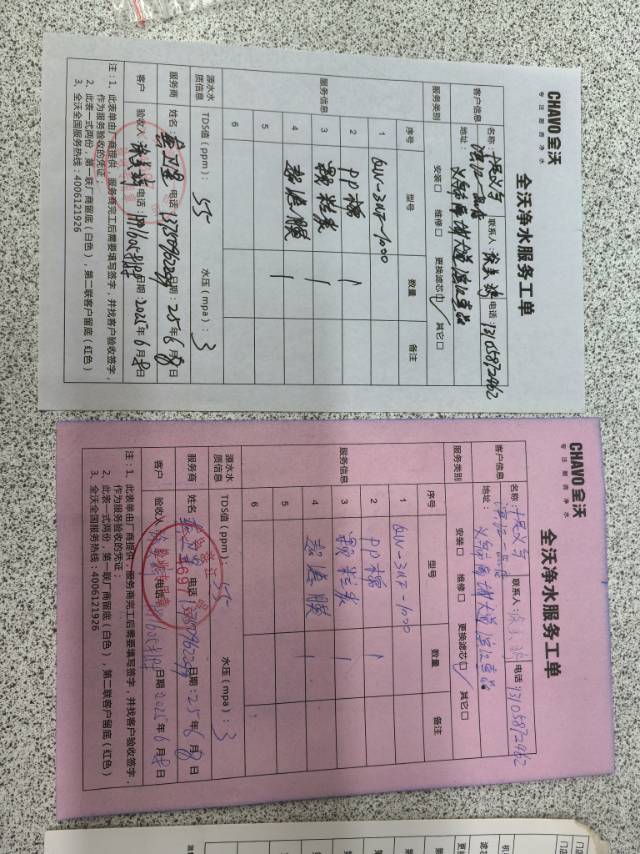 CHAVO全沃
专注厨房净水
全沃净水服务工单
客户信息 名称: 联系人: 电话 13105872962
地址:
服务类别 安装□ 维修□ 更换滤芯☑ 其它□
服务信息 序号 型号 数量 备注
1 QUN-3NT-1600
2 PP棉 1
3 颗粒炭 1
4 超滤膜 1
5
6
源水水质信息 TDS值(ppm): 55 水压(mpa): 3
服务商 姓名: 电话: 日期: 25年6月8日
客户 验收人: 电话: 日期: 2025年6月8日
注:1、此表单由厂商提供,服务商完工后需要填写签字,并找客户验收签字,
作为服务验收的凭证;
2、此表一式两份,第一联厂商留底(白色),第二联客户留底(红色)
3、全沃全国服务热线:4006121926
CHAVO全沃
专注厨房净水
全沃净水服务工单
客户信息 名称: 联系人: 电话 13105872962
地址:
服务类别 安装□ 维修□ 更换滤芯☑ 其它□
服务信息 序号 型号 数量 备注
1 QUN-3NT-1600
2 PP棉 1
3 颗粒炭 1
4 超滤膜 1
5
6
源水水质信息 TDS值(ppm): 55 水压(mpa): 3
服务商 姓名 电话 日期: 25年6月8日
客户 验收人 电话 日期: 2025年6月8日
注:1、此表单由厂商提供,服务商完工后需要填写签字,并找客户验收签字,
作为服务验收的凭证;
2、此表一式两份,第一联厂商留底(白色),第二联客户留底(红色)
3、全沃全国服务热线:4006121926